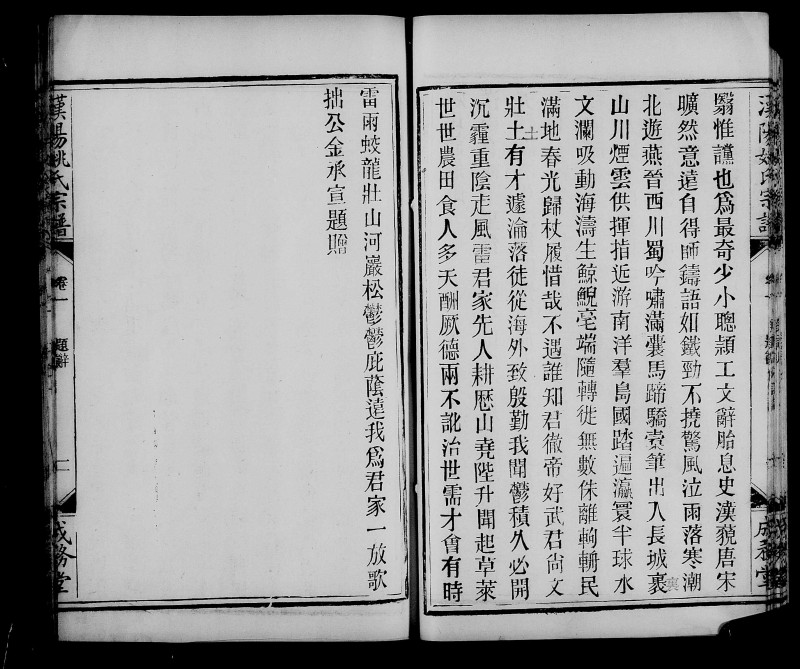 漢陽姚氏宗譜
成務堂
翳惟讜也為最奇少小聰頴工文辭胎息史漢藐唐宋
曠然意遠自得師鑄語如鐵勁不撓驚風泣雨落寒潮
北遊燕晉西川蜀吟嘯滿囊馬蹄驕橐筆出入長城裹
裏
山川煙雲供揮指近游南洋羣島國踏遍瀛寰半球水
文瀾吸動海濤生鯨鯢毫端隨轉徙無數侏離軥輈民
滿地春光歸杖履惜哉不遇誰知君徹帝好武君尙文
土
壯士有才遽淪落徒從海外致殷勤我聞鬱積久必開
沉霾重陰走風雷君家先人耕厯山堯陛升聞起草萊
世世農田食人多天酬厥德兩不訛治世需才會有時
雷雨蛟龍壯山河巖松鬱鬱庇蔭遠我爲君家一放歌
拙公金承宣題贈
漢陽姚氏宗譜
卷一
題辭
二
成務堂